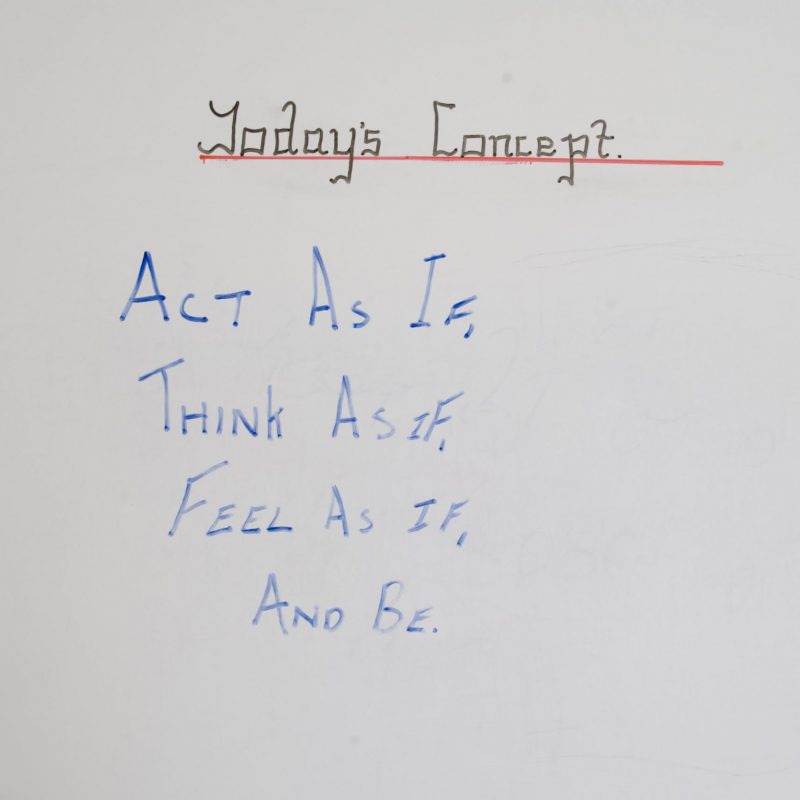 Today's Concept.
ACT AS IF,
THINK AS IF,
FEEL AS IF,
AND BE.